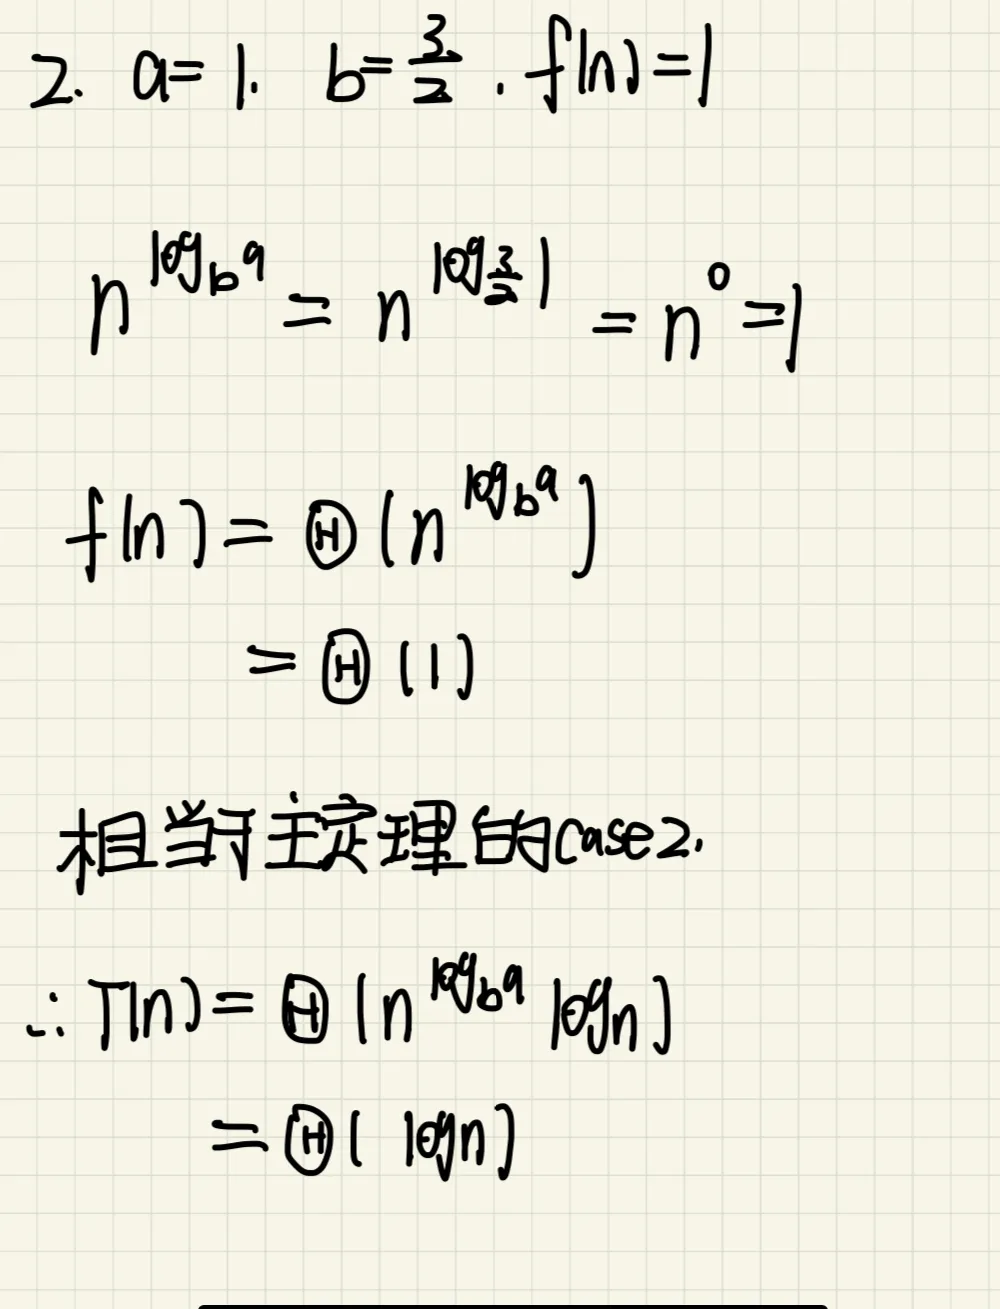 2. a=1. b=3/2. f(n)=1
n^{log_b a} = n^{log_{3/2} 1} = n^0 = 1
f(n) = Θ(n^{log_b a})
= Θ(1)
相当于主定理的case2.
∴ T(n) = Θ(n^{log_b a} logn)
= Θ(logn)